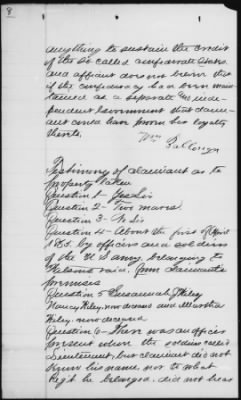 8
anything to sustain the credit
of the so called confederate States.
and affiant does not believe that
if the confederacy had been main
tained as a separate and inde-
pendent Government that claim-
ant could have proven his loyalty
thereto.
Wm
Testimony of claimant as to
property taken
Question 1- Yes Sir
Question 2- Two mares
Question 3- No Sir
Question 4- About the first of April
1865. by officers and soldiers
of the U S army belonging to
raid. from claimants
premises
Question 5 Susannah J Kiley
Nancy Kiley, now and Martha
Kiley, now deceased
Question 6- There was an officer
present when the soldiers called
Lieutenant, but claimant did not
know his name, nor to what
Regt he belonged. did not hear